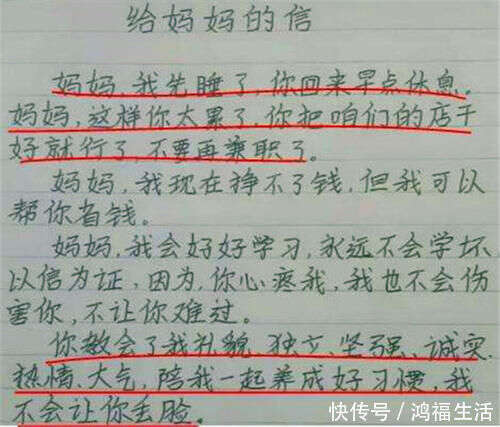 给妈妈的信
妈妈,我先睡了,你回来早点休息。
妈妈,这样你太累了,你把咱们的店干
好就行了,不要再兼职了。
妈妈,我现在挣不了钱,但我可以
帮你省钱。
妈妈,我会好好学习,永远不会学坏
以信为证,因为,你心疼我,我也不会伤
害你,不让你难过。
你教会了我礼貌、独立、坚强、诚实、
热情、大气,陪我一起养成好习惯,我
不会让你丢脸。
快传号/鸿福生活